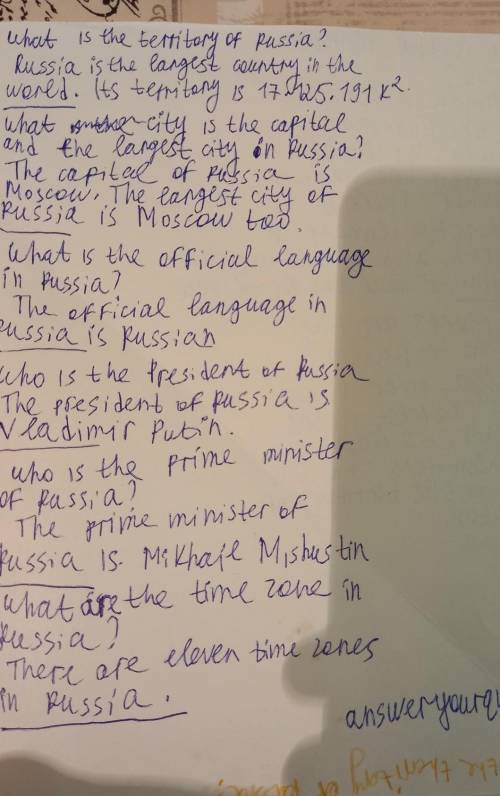 What is the territory of Russia?
Russia is the largest country in the
world. Its territory is 17.125.191 K².
What city is the capital
and the largest city in Russia?
The capital of Russia is
Moscow. The largest city of
Russia is Moscow too.
What is the official language
in Russia?
The official language in
Russia is Russian
Who is the President of Russia
The president of Russia is
Vladimir Putin.
Who is the prime minister
of Russia?
The prime minister of
Russia is. Mikhail Mishustin
What are the time zone in
Russia?
There are eleven time zones
in Russia.
answeryourqu